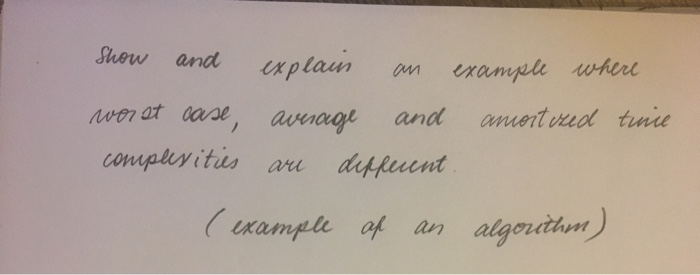 Show and explain an example where
worst case, average and amortized time
complexities are different.
(example of an algorithm)